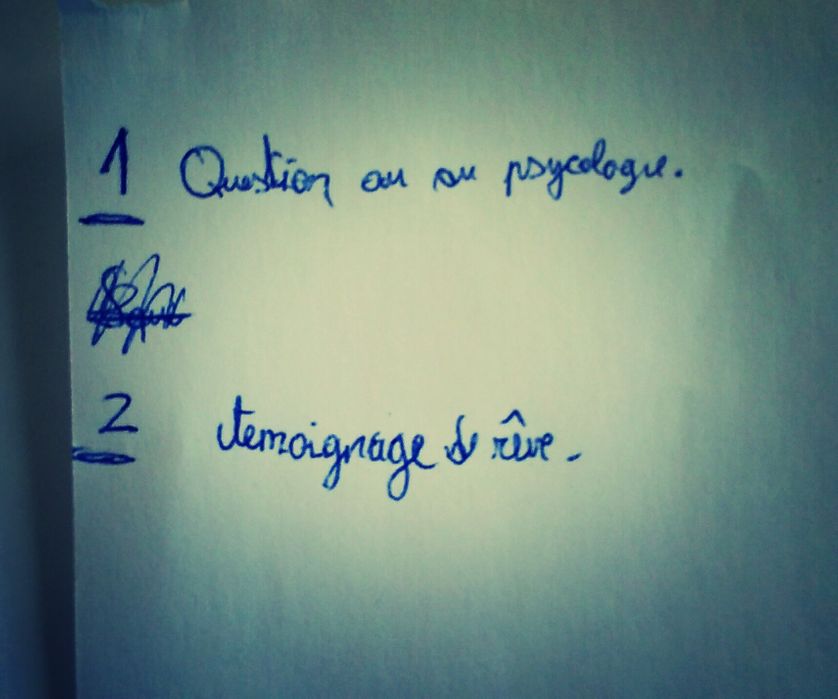 1 Question au ou psycologue.
2 temoignage de rêve.